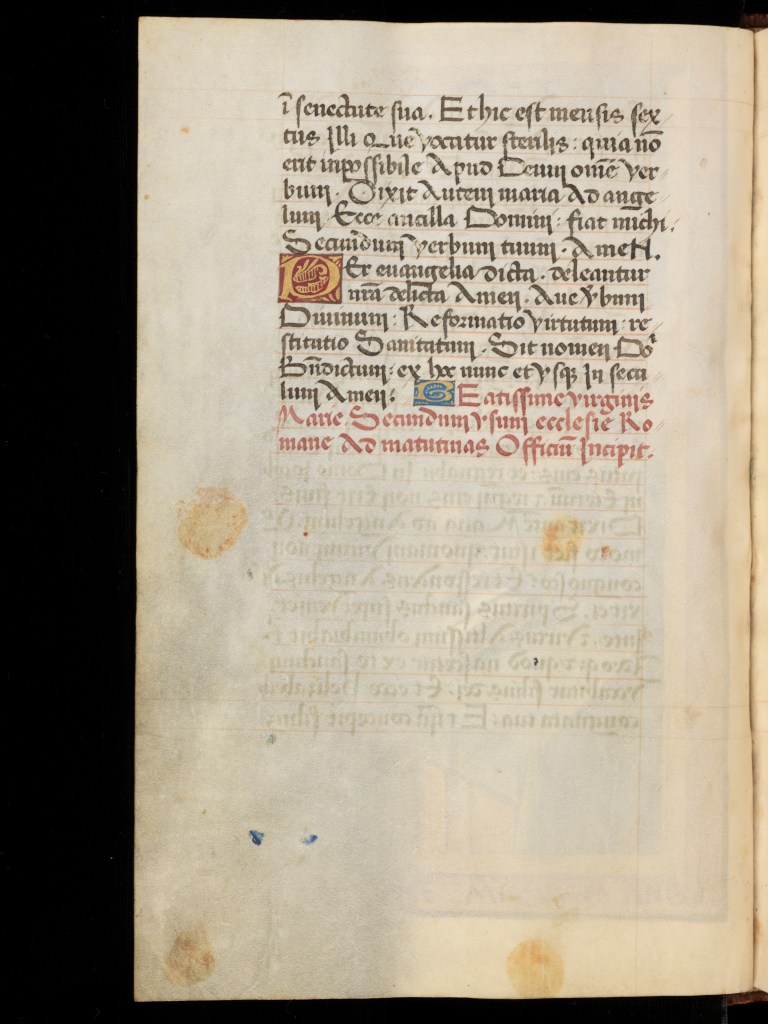 ĩ senectute sua. Et hic est mensis sex
tus Illi Que vocatur sterilis: quia nõ
erit inpossibile Apud Deum omẽ ver
bum. Dixit Autem maria Ad ange
lum. Ecce ancilla Domini: fiat michi.
Secundum verbum tuum. Amen.
PEr euangelia dicta. deleantur
nrã delicta Amen. Aue ṽbum
Diuinum: Reformatio virtutum: re
stitutio Sanitatum. Sit nomen Do
Bñdictum: ex hoc nunc et vsq In secu
lum Amen: BEatissime virginis
Marie. Secundum vsum ecclesie Ro
mane Ad matutinas Officiũ Incipit.